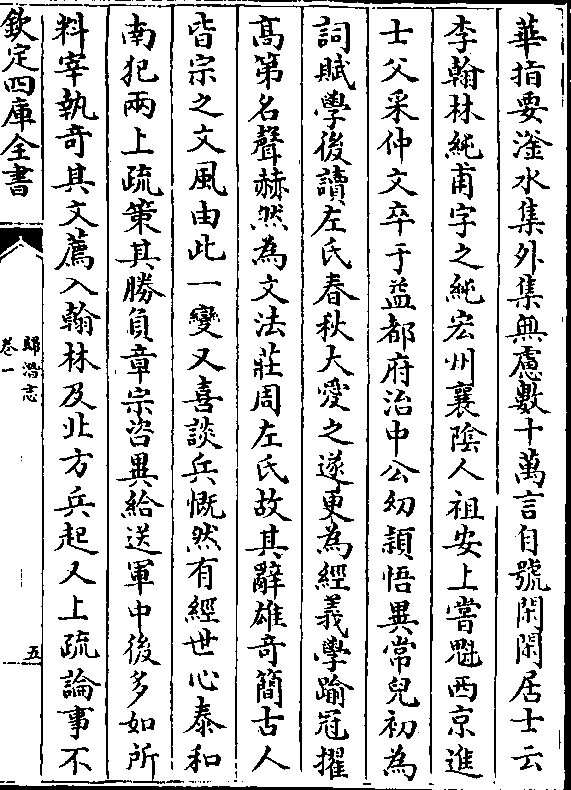 華指要滏水集外集無慮數十萬言自號閑閑居士云
李翰林純甫字之純宏州襄陰人祖安上嘗魁西京進
士父采仲文卒于益都府治中公幼頴悟異常兒初為
詞賦學後讀左氏春秋大愛之遂更為經義學踰冠擢
高第名聲赫然為文法莊周左氏故其辭雄奇簡古人
皆宗之文風由此一變又喜談兵慨然有經世心泰和
南犯兩上疏策其勝負章宗咨異給送軍中後多如所
料宰執奇其文薦入翰林及北方兵起又上疏論事不
欽定四庫全書
歸潛志
卷一
五